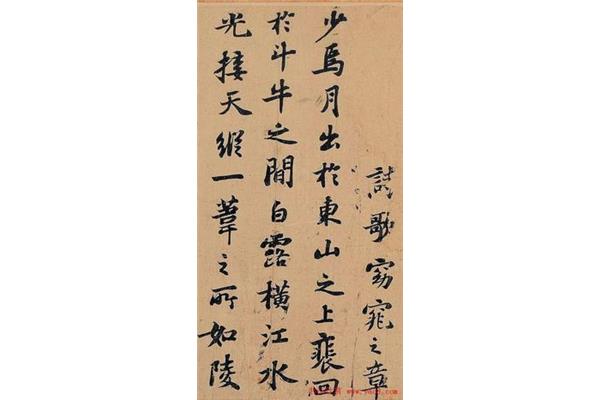 詩歌窈窕之章
少焉月出於東山之上裵回
於斗牛之間白露橫江水
光接天縱一葦之所如陵